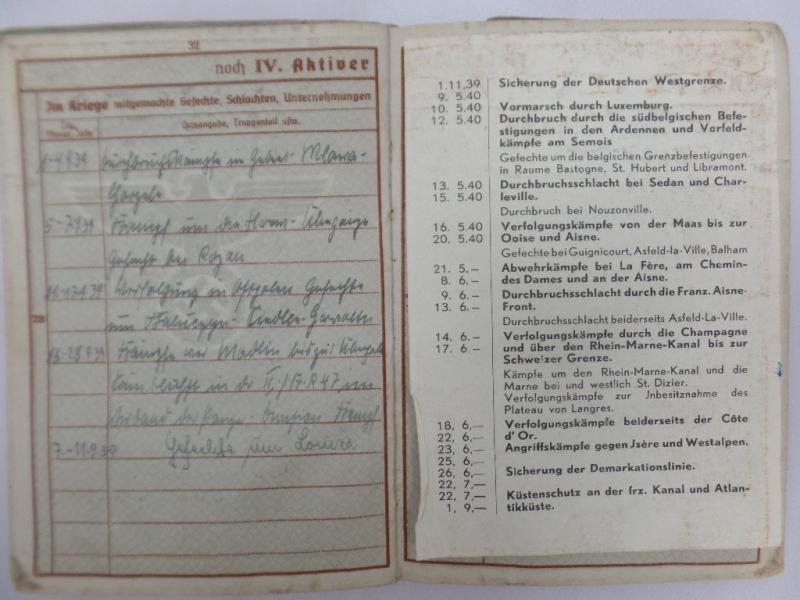 32
noch IV. Aktiver
Im Kriege mitgemachte Gefechte, Schlachten, Unternehmungen
Ortsangabe, Truppenteil usw.
1-4.9.39 Durchbruchskämpfe im Gebiet Mlawa-
5-7.9.39 Kampf um die Narew-Übergänge
Gefecht bei Rozan
Verfolgung in Ostpolen Gefechte
um
28
Kämpfe um Modlin bis zur Übergabe
im
Verband der Panzer-Division Kempf
7.-11.9.39 Gefechte um Lomza
1.11.39 Sicherung der Deutschen Westgrenze.
9. 5.40
10. 5.40 Vormarsch durch Luxemburg.
12. 5.40 Durchbruch durch die südbelgischen Befe-
stigungen in den Ardennen und Vorfeld-
kämpfe am Semois
Gefechte um die belgischen Grenzbefestigungen
in Raume Bastogne, St. Hubert und Libramont.
13. 5.40 Durchbruchsschlacht bei Sedan und Char-
15. 5.40 leville.
Durchbruch bei Nouzonville.
16. 5.40 Verfolgungskämpfe von der Maas bis zur
20. 5.40 Ooise und Aisne.
Gefechte bei Guignicourt, Asfeld-la-Ville, Balham
21. 5.— Abwehrkämpfe bei La Fère, am Chemin-
8. 6.— des Dames und an der Aisne.
9. 6.— Durchbruchsschlacht durch die Franz. Aisne-
13. 6.— Front.
Durchbruchsschlacht beiderseits Asfeld-La-Ville.
14. 6.— Verfolgungskämpfe durch die Champagne
17. 6.— und über den Rhein-Marne-Kanal bis zur
Schweizer Grenze.
Kämpfe um den Rhein-Marne-Kanal und die
Marne bei und westlich St. Dizier.
Verfolgungskämpfe zur Jnbesitznahme des
Plateau von Langres.
18, 6,— Verfolgungskämpfe beiderseits der Côte
22, 6,— d' Or.
23, 6,— Angriffskämpfe gegen Jsère und Westalpen.
25, 6,—
26, 6,— Sicherung der Demarkationslinie.
22, 7,—
22, 7,— Küstenschutz an der frz. Kanal und Atlan-
1, 9,— tikküste.